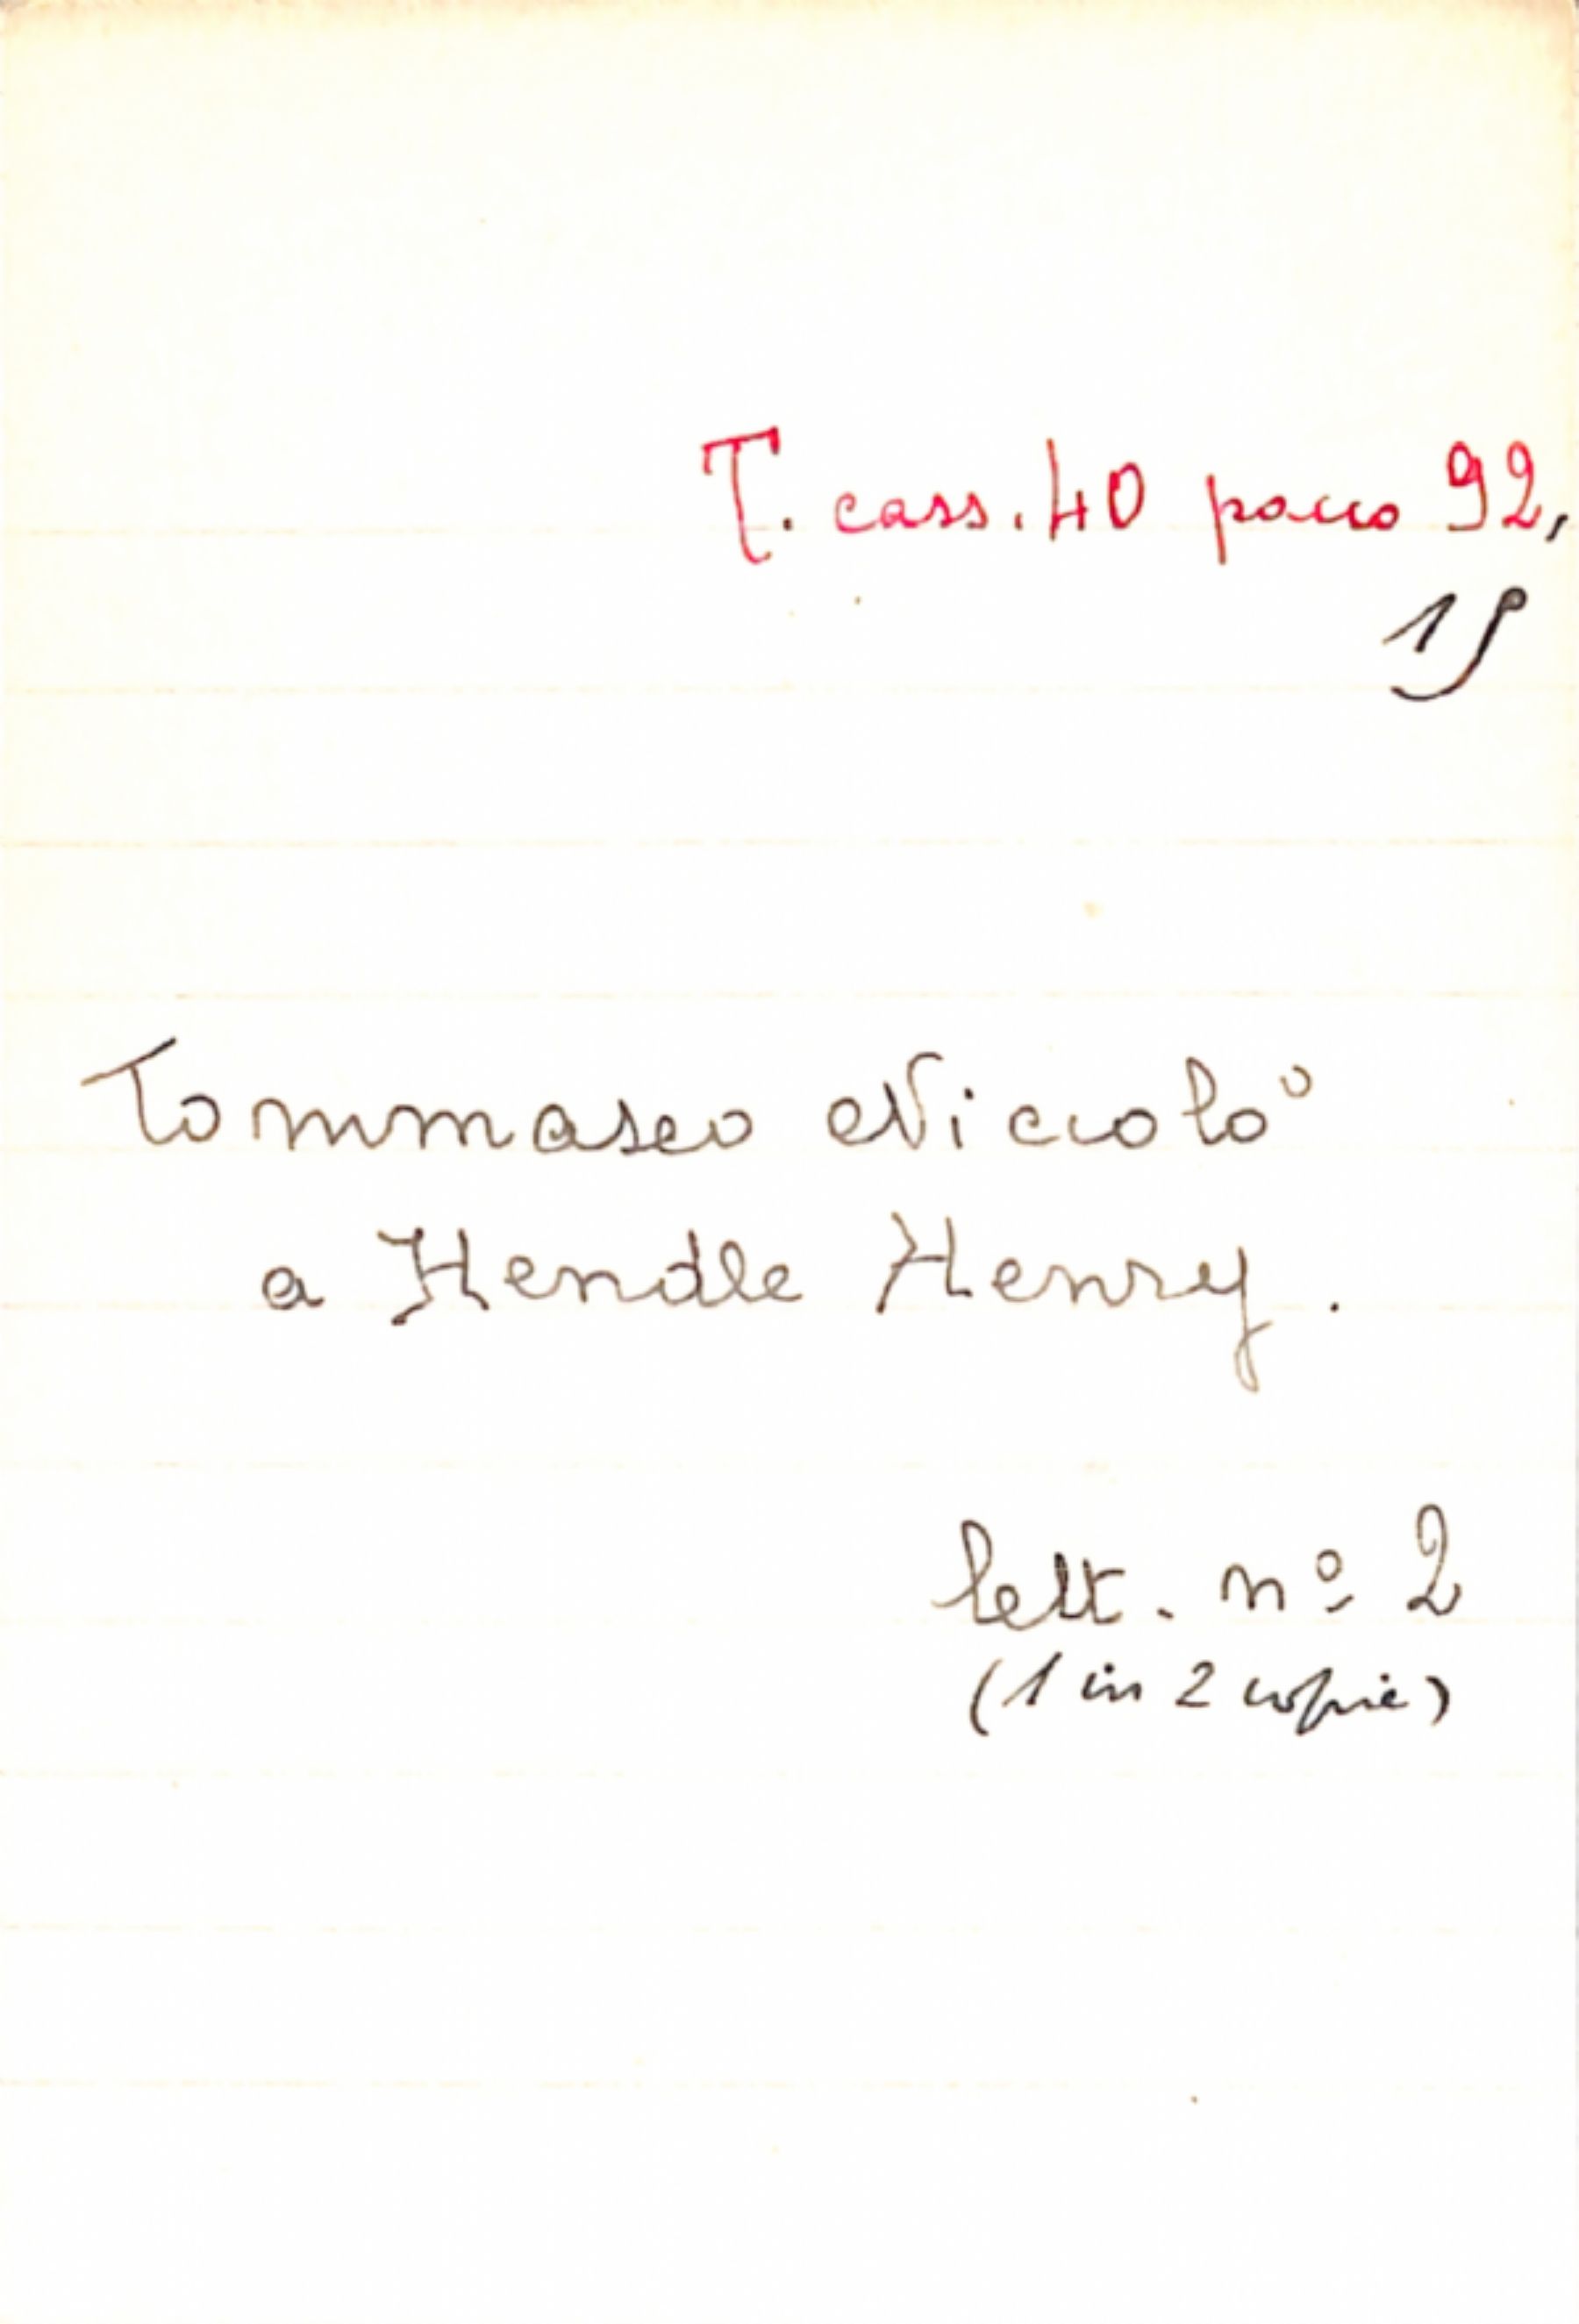 T. cass. 40 pacco 92,
19
Tommaseo Niccolò
a Hendle Henry.
lett. nº 2
(1 in 2 copie)